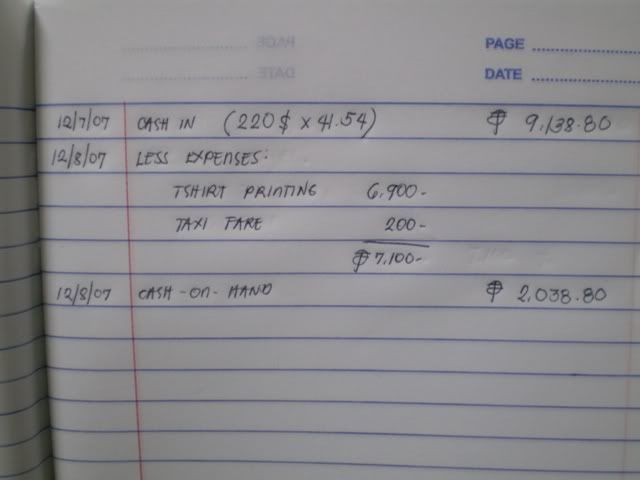 PAGE
DATE
PAGE ..............
DATE ..............
12/7/07 CASH IN (220$ x 41.54) ₱ 9,138.80
12/8/07 LESS EXPENSES:
TSHIRT PRINTING 6,900-
TAXI FARE 200-
₱ 7,100-
12/8/07 CASH-ON-HAND ₱ 2,038.80